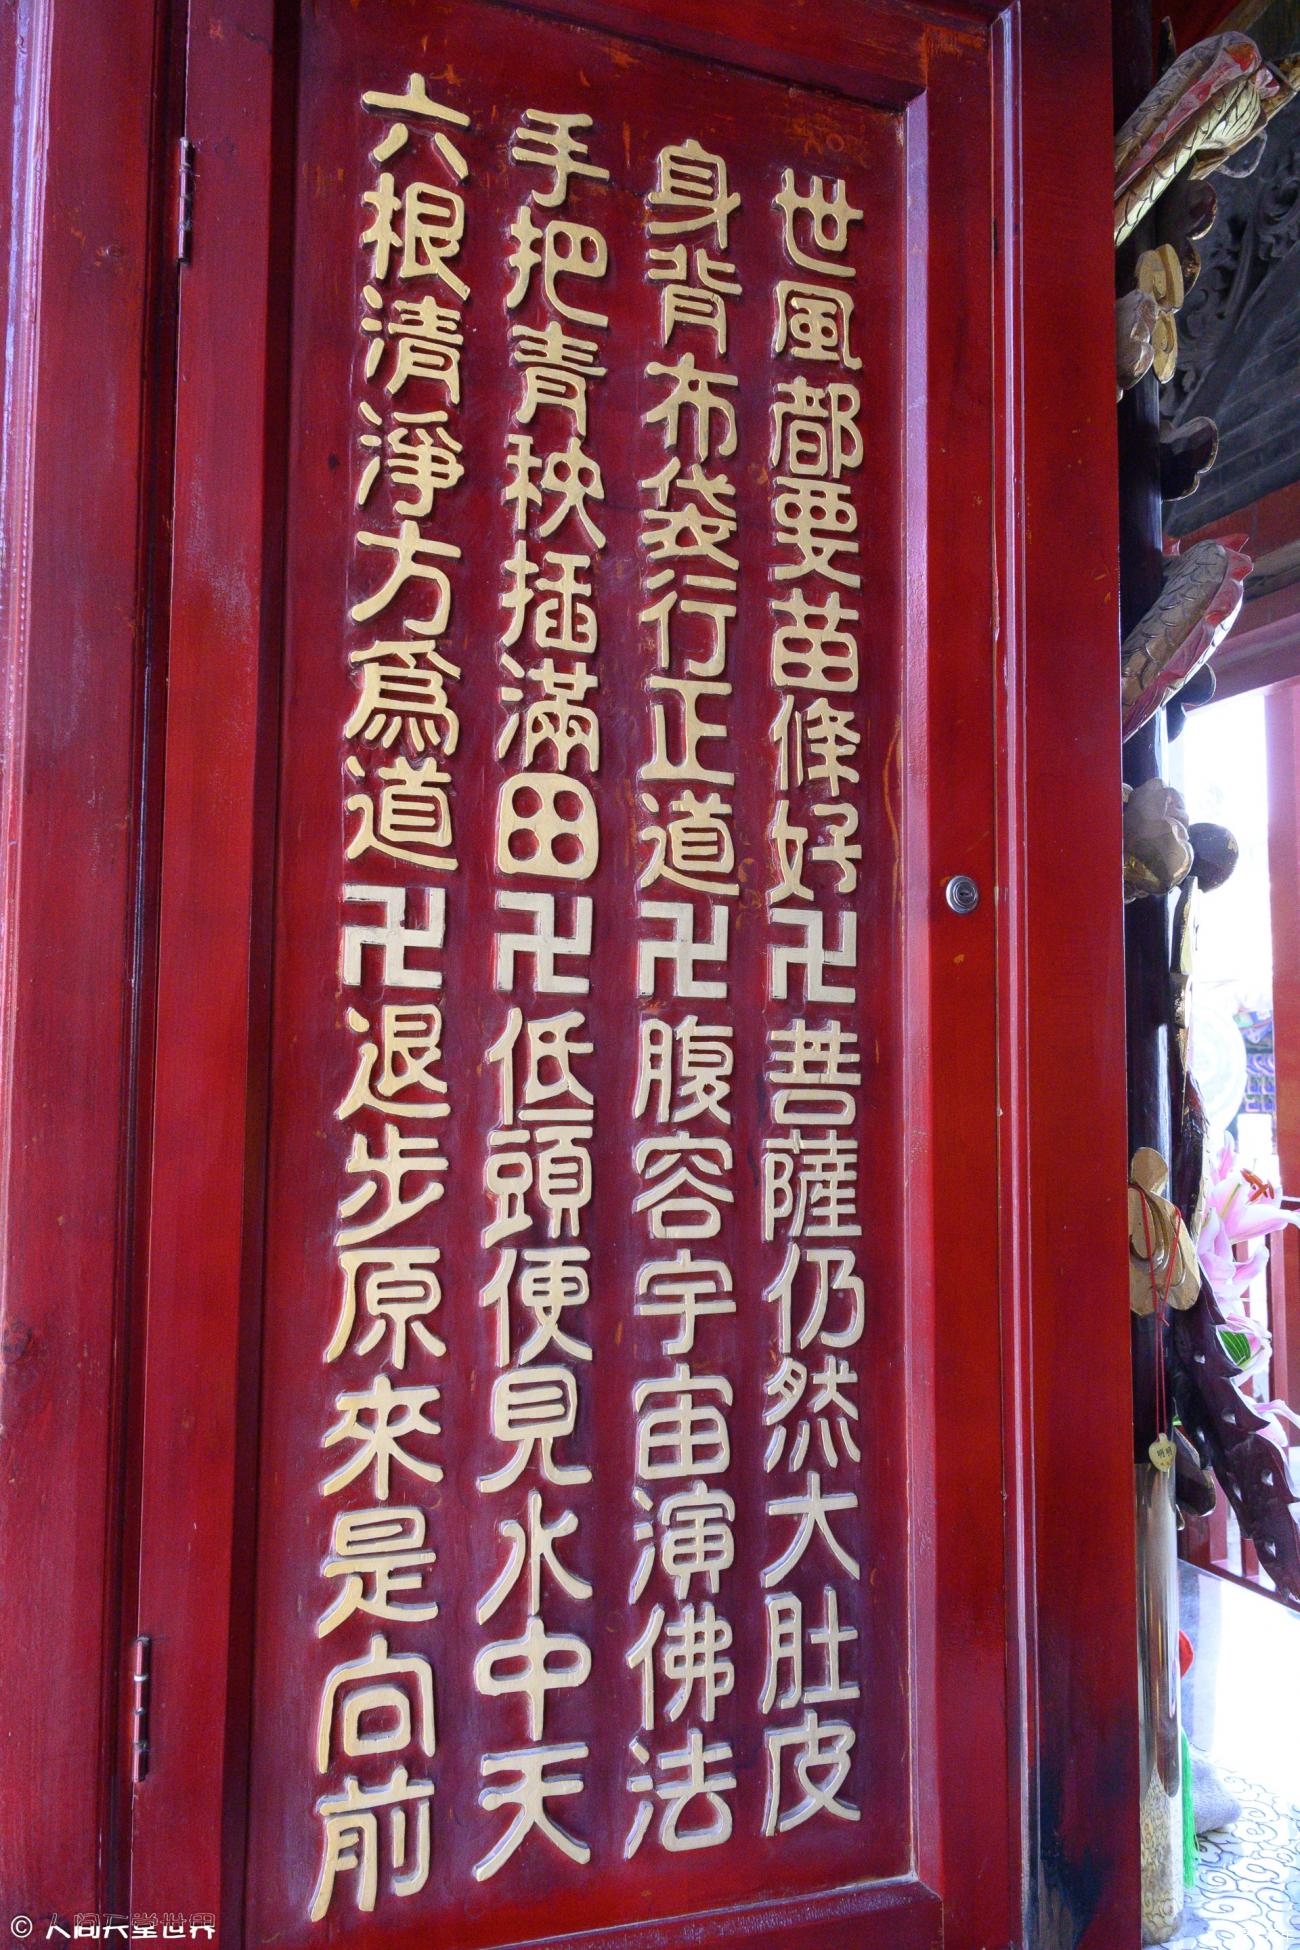 世風都要苗條好卍菩薩仍然大肚皮
身背布袋行正道卍腹容宇宙演佛法
手把青秧插滿田卍低頭便見水中天
六根清淨方爲道卍退步原來是向前
© 人间天堂世界